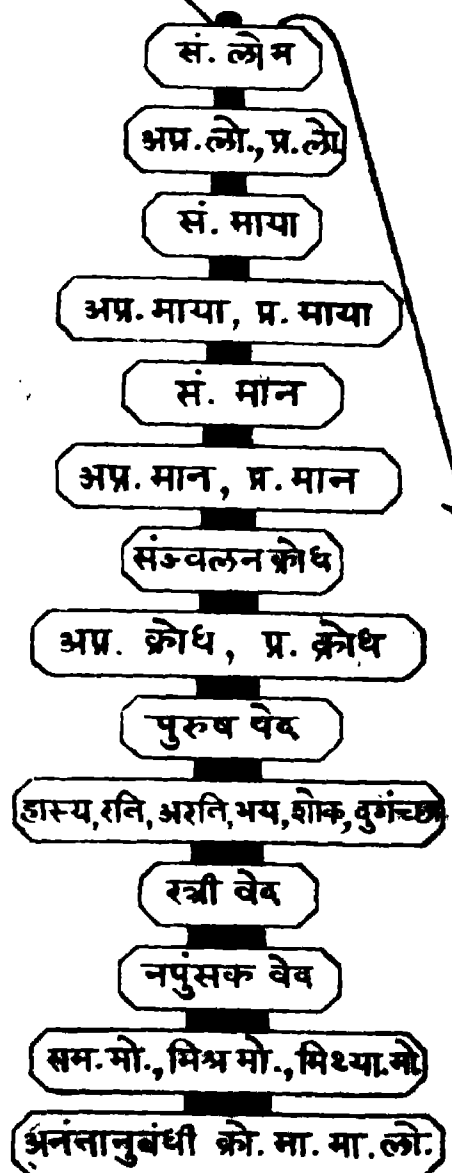 सं. लोभ
अप्र.लो., प्र.लो.
सं. माया
अप्र. माया, प्र. माया
सं. मान
अप्र. मान, प्र. मान
संज्वलन क्रोध
अप्र. क्रोध, प्र. क्रोध
पुरुष वेद
हास्य, रति, अरति, भय, शोक, दुगंच्छा
स्त्री वेद
नपुंसक वेद
सम. मो., मिश्र मो., मिथ्या. मो.
अनंतानुबंधी क्रो. मा. मा. लो.